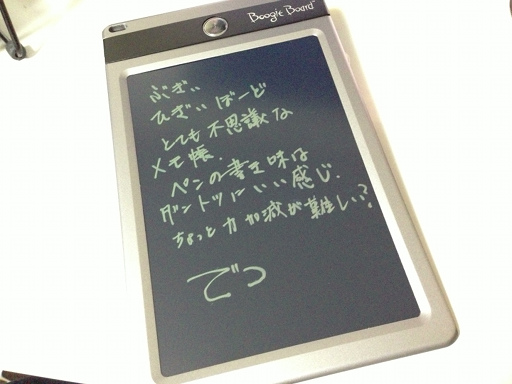 Boogie Board™
ぶぎぃ
ひぎぃ ばーど
とても不思議な
メモ帳.
ペンの書き味は
ダントツにいい感じ.
ちょっと力加減が難しい?!
でっ